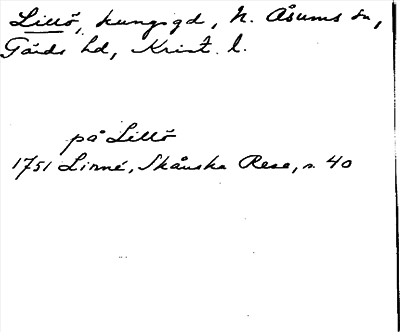 Lillö, kungsgd, N. Åsums sn,
Gärds hd, Krist. l.
på Lillö
1751 Linné, Skånska Resa, s. 40